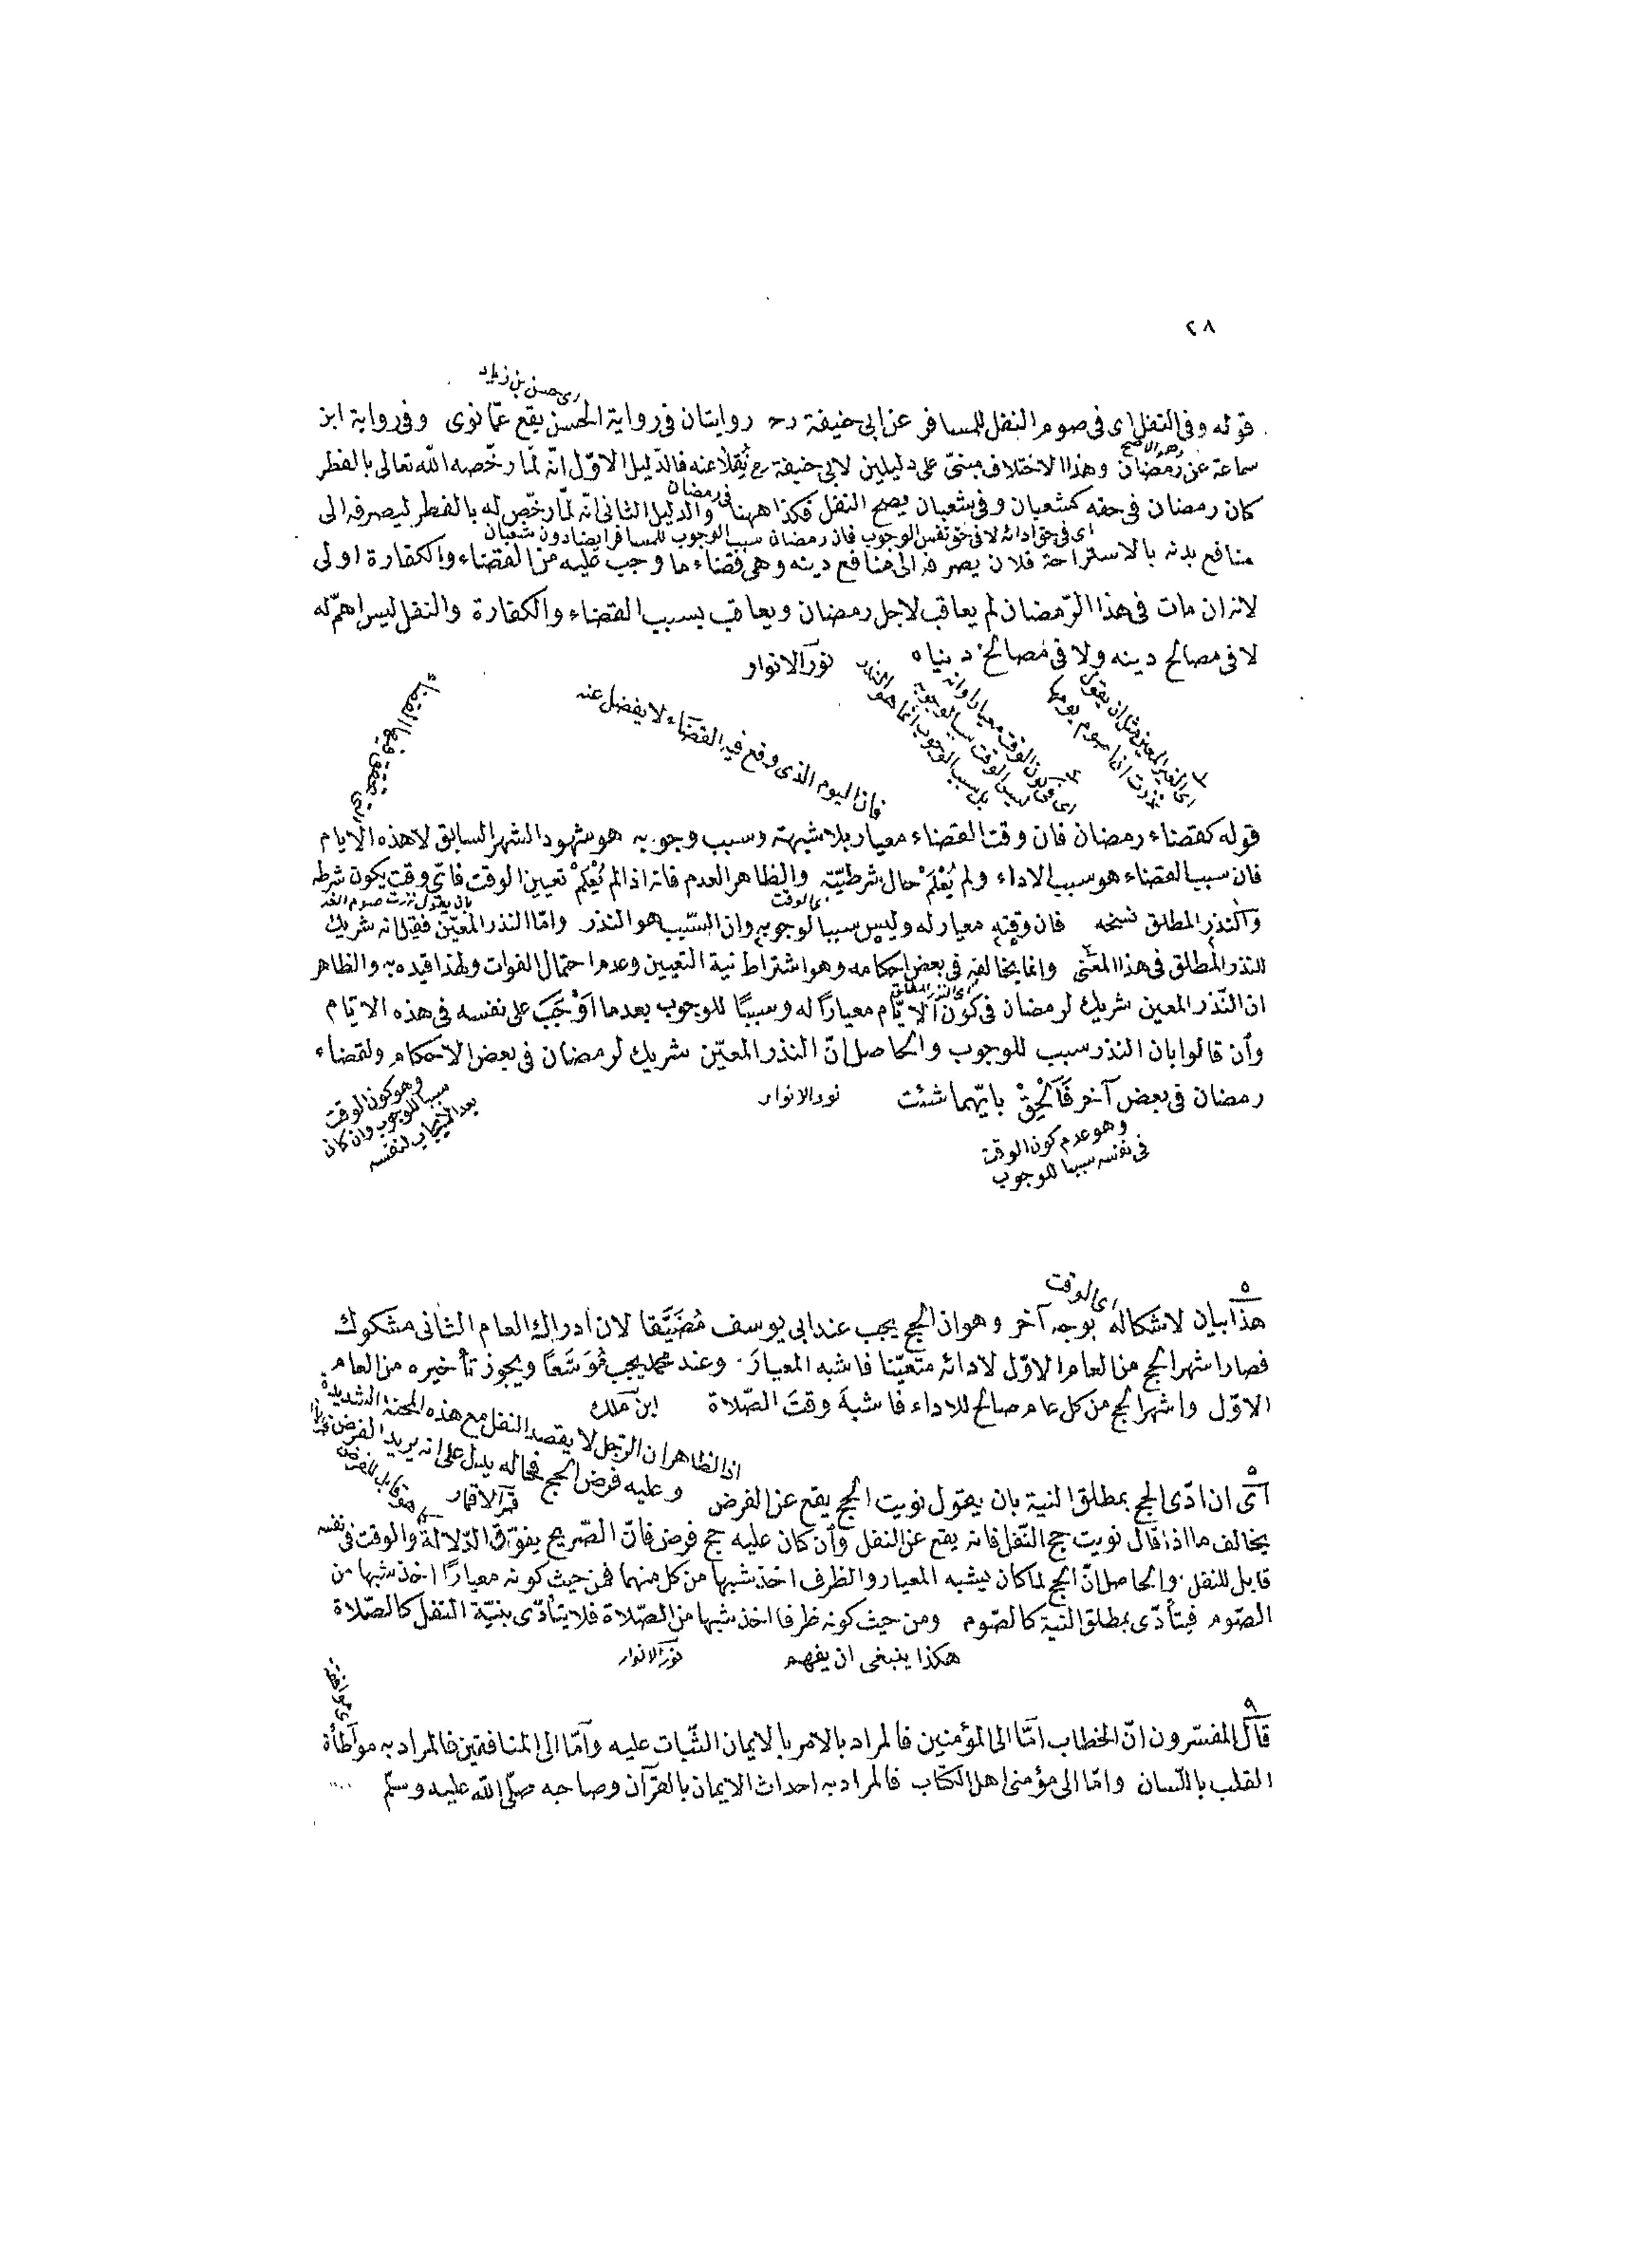 ٢٨
اى حسن بن زياد
قوله وفى النفل اى فى صوم النفل للمسافر عن ابى حنيفة رح روايتان فى رواية الحسن يقع عمّا نوى وفى رواية ابن
وهو الاصح
سماعة عن رمضان وهذا الاختلاف مبنىّ على دليلين لابى حنيفة رح نُقِلَا عنه فالدّليل الاوّل انّه لمّا رخّصه الله تعالى بالفطر
كان رمضان فى حقه كشعبان وفى شعبان يصح النفل فكذا ههنا والدليل الثانى انّه لمّا رخّص له بالفطر ليصرفه الى
فى رمضان
اى فى حق ادائه لا فى حق نفس الوجوب فان رمضان سبب الوجوب للمسافر ايضا دون شعبان
منافع بدنه بالاستراحة فلان يصرفه الى منافع دينه وهى قضاء ما وجب عليه من القضاء والكفارة اولى
لانه ان مات فى هذا الرّمضان لم يعاقب لاجل رمضان ويعاقب بسبب القضاء والكفارة والنفل ليس اهمّ له
لا فى مصالح دينه ولا فى مصالح دنياه نور الانوار
اى الغير المعين مثل ان يقول
نذرت انا صوم يوم
اى فى كون الوقت معيارا وانه
ليس الوقت سبب لوجوبه
بل سبب الوجوب انما هو النذر
فان اليوم الذى وقع فيه القضاء لا يفضل عنه
التى يتحقق فيها القضاء
قوله كقضاء رمضان فان وقت القضاء معيار بلا شبهة وسبب وجوبه هو شهود الشهر السابق لا هذه الايام
فان سبب القضاء هو سبب الاداء ولم يُعْلَمْ حال شرطيّته والظاهر العدم فانه اذا لم يُعْلَمْ تعيين الوقت فاىّ وقت يكون شرطه
اى الوقت
بان يقول نذرت صوم الغد
والنذر المطلق نسخه فان وقته معيار له وليس سببا لوجوبه وان السّبب هو النذر وامّا النذر المعيّن فقيل انه شريك
للنذر المطلق فى هذا المعنى وانما يخالفه فى بعض احكامه وهو اشتراط نية التعيين وعدم احتمال الفوات ولهذا قيده به والظاهر
اى النذر المطلق
ان النّذر المعين شريك لرمضان فى كون الايّام معيارًا له وسببًا للوجوب بعدما اَوْجَبَ على نفسه فى هذه الايّام
وأن قالوا بان النذر سبب للوجوب والحاصل انّ النذر المعيّن شريك لرمضان فى بعض الاحكام ولقضاء
رمضان فى بعض آخر فَاَلْحِقْ بايّهما شئت نور الانوار
وهو كون الوقت
سببا للوجوب وان كان
بعد الايجاب لنفسه
وهو عدم كون الوقت
فى نفسه سببا للوجوب
اى الوقت
٥
هذا بيان لاشكاله بوجه آخر وهو ان الحج يجب عند ابى يوسف مُضَيَّقا لان ادراك العام الثانى مشكوك
فصار اشهر الحج من العام الاوّل لادائه متعيّنا فاشبه المعيارَ وعند محمد يجب مُوَسَّعًا ويجوز تأخيره من العام
الاوّل واشهر الحج من كل عام صالح للاداء فاشبهَ وقتَ الصّلاة ابن ملك
اذ الظاهر ان الرّجل لا يقصد النفل مع هذه المحنة الشديدة
وعليه فرض الحج فحاله يدل على انه يريد الفرض
قمر الاقمار
٥
اَىْ ان ادّى الحج بمطلق النية بان يقول نويت الحج يقع عن الفرض
يخالف ما اذا قال نويت حج النّفل فانه يقع عن النفل وأن كان عليه حج فرض فانّ الصّريح يفوق الدّلالة والوقت فى نفسه
قابل للنفل والحاصل انّ الحج لما كان يشبه المعيار والظرف اخذ شبها من كل منهما فمن حيث كونه معيارًا اخذ شبها من
الصّوم فيتأدّى بمطلق النية كالصّوم ومن حيث كونه ظرفا اخذ شبها من الصّلاة فلا يتأدّى بنيّة النفل كالصّلاة
هكذا ينبغى ان يفهم نور الانوار
اى موافقة
٩
قال المفسّرون انّ الخطاب امّا الى المؤمنين فالمراد بالامر بالايمان الثّبات عليه وامّا الى المنافقين فالمراد به مواطأة
القلب باللّسان وامّا الى مؤمنى اهل الكتاب فالمراد به احداث الايمان بالقرآن وصاحبه صلّى الله عليه وسلّم